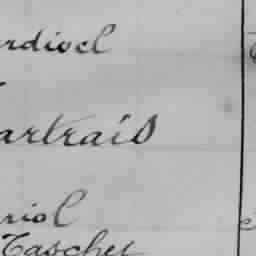 rdivel
artrais
riol
Taschet